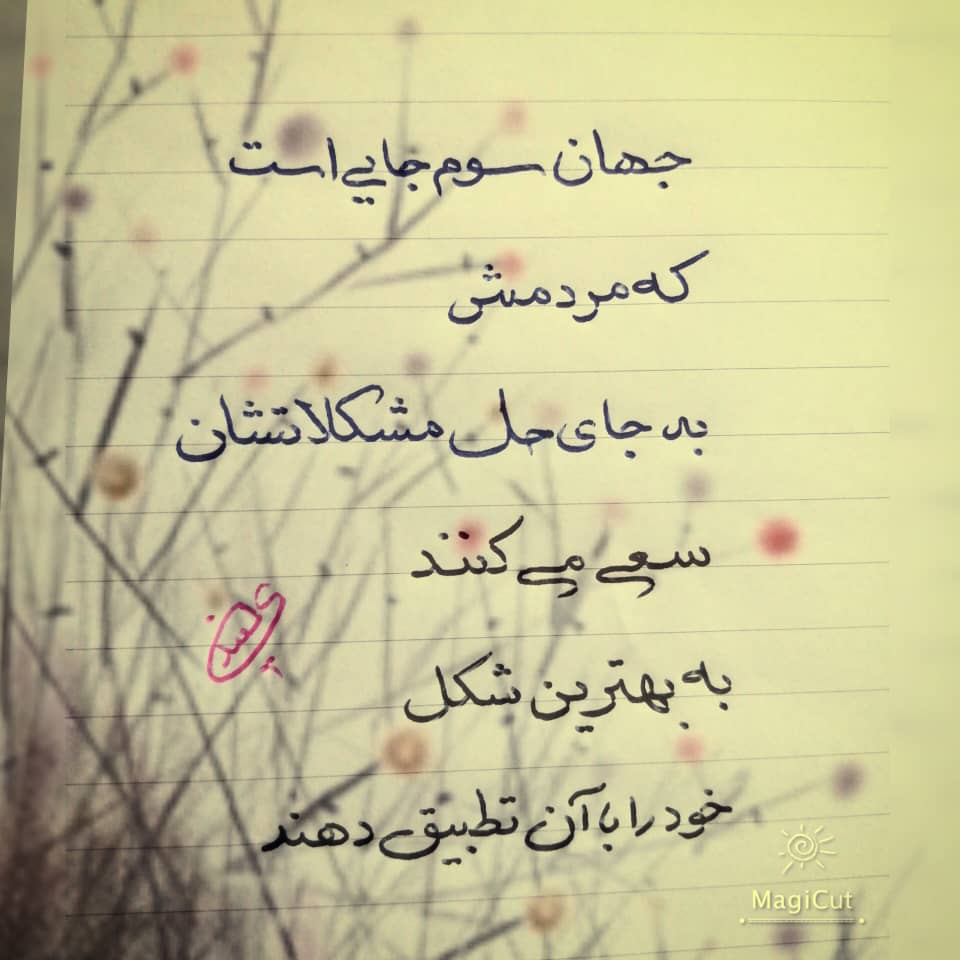 جهان سوم جایی است
که مردمش
به جای حل مشکلاتشان
سعی می کنند
به بهترین شکل
خود را با آن تطبیق دهند
MagiCut